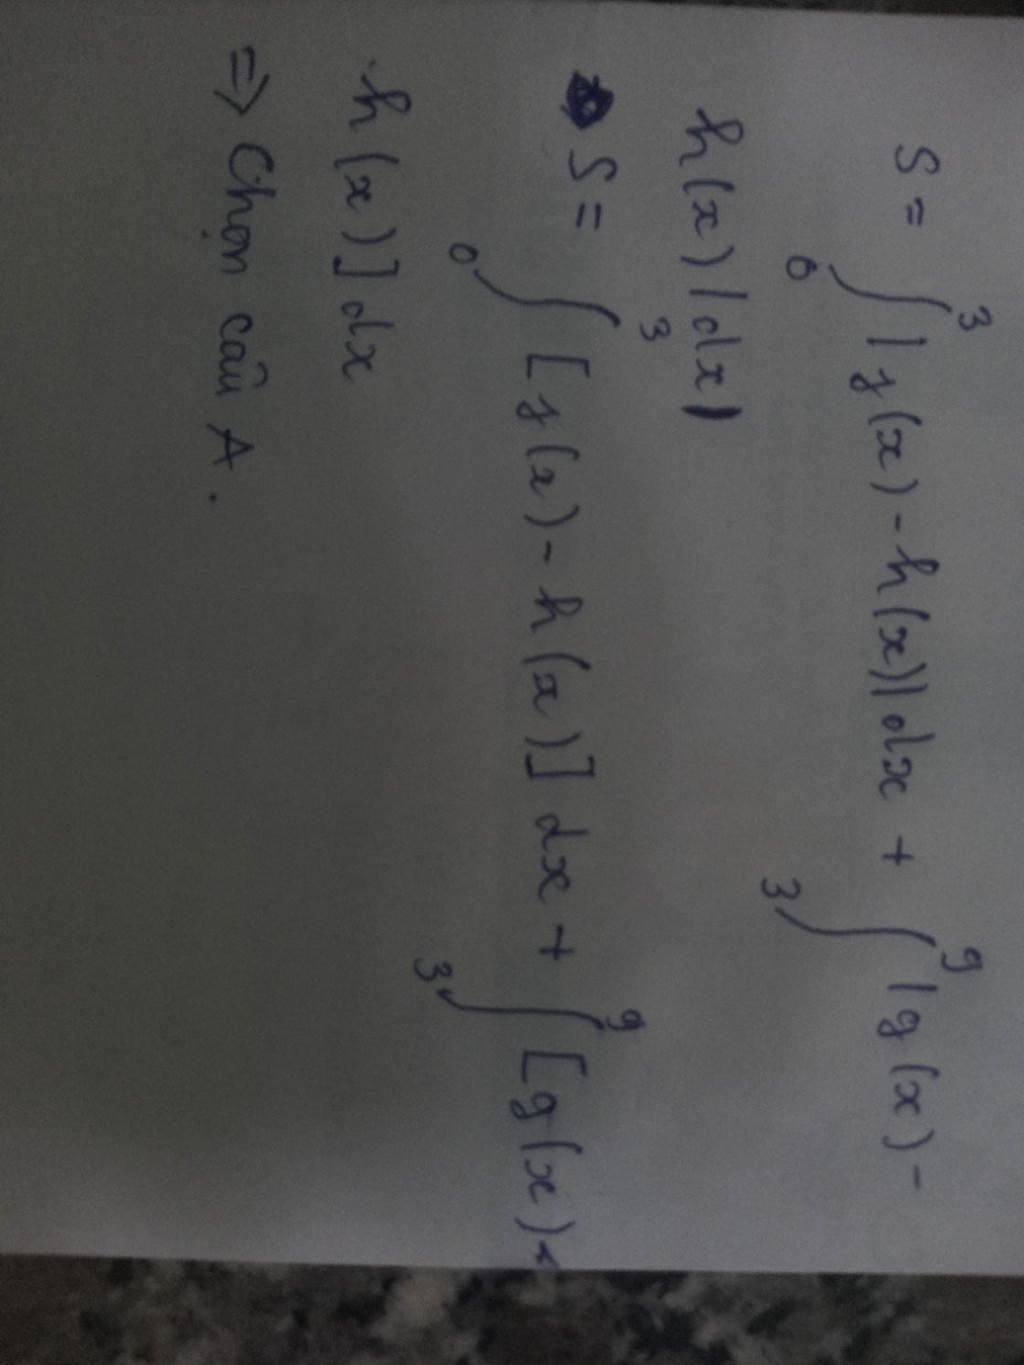 S = ∫₀³ |f(x) - h(x)| dx + ∫₃⁹ |g(x) -
h(x)| dx)
S = ∫₀³ [f(x) - h(x)] dx + ∫₃⁹ [g(x) -
h(x)] dx
=> Chọn câu A.